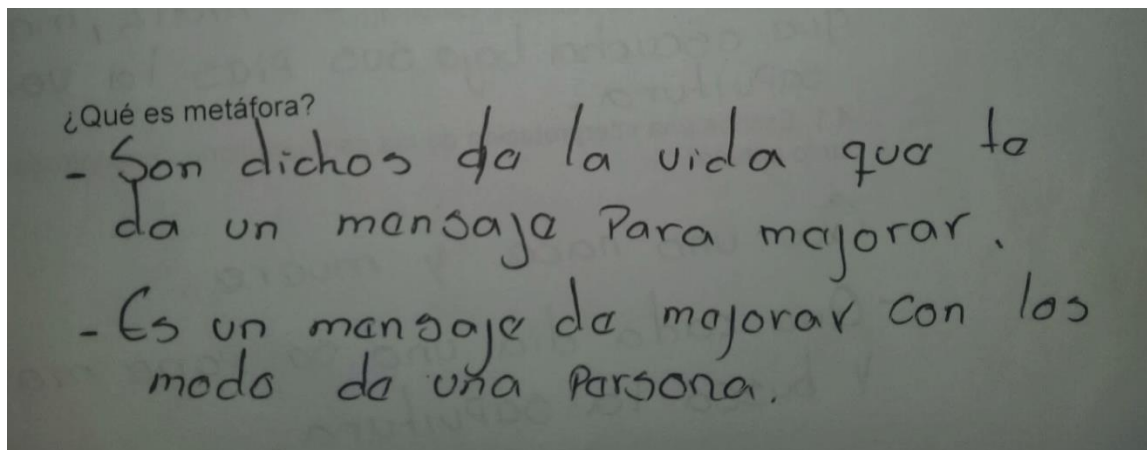 ¿Qué es metáfora?
- Son dichos de la vida que te
da un mensaje Para mejorar.
- Es un mensaje de mejorar con los
modo de uña Persona.